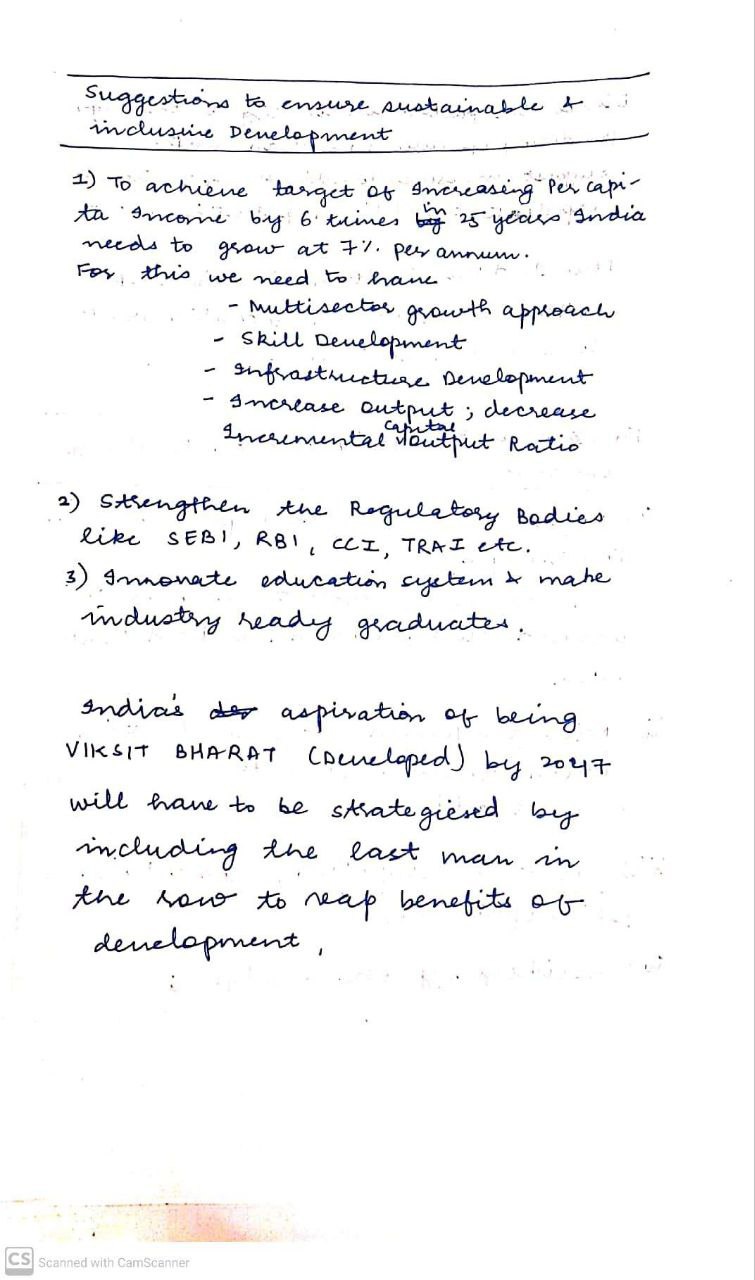 Suggestions to ensure sustainable &
inclusive Development
1) To achieve target of Increasing Per capi-
ta Income by 6 times in 25 years India
needs to grow at 7%. per annum.
For, this we need to have
- Multisector growth approach
- Skill Development
- Infrastructure Development
- Increase output; decrease
Incremental Capital output Ratio
2) Strengthen the Regulatory Bodies
like SEBI, RBI, CCI, TRAI etc.
3) Innovate education system & make
industry ready graduates.
India's aspiration of being
VIKSIT BHARAT (Developed) by 2047
will have to be strategiesed by
including the last man in
the row to reap benefits of
development,
CS Scanned with CamScanner